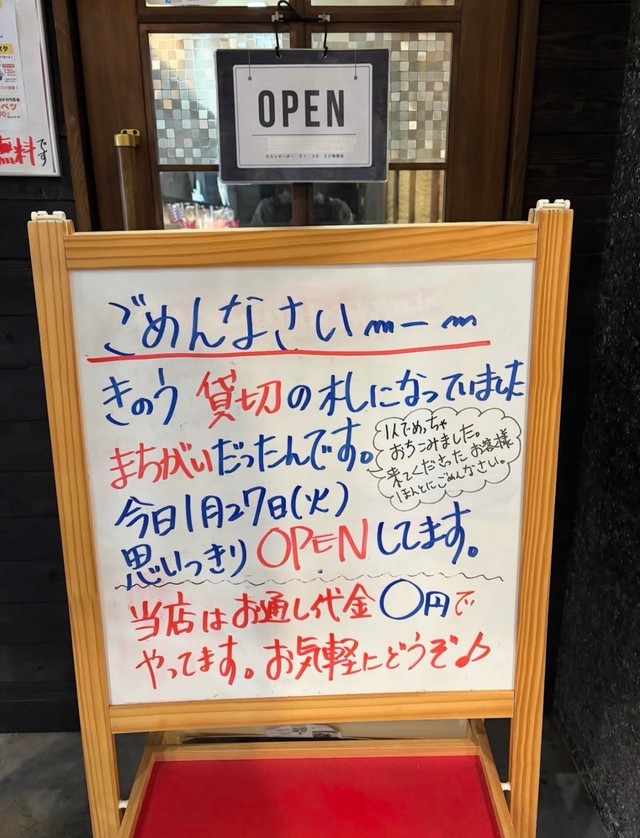 無料です
OPEN
ごめんなさいm－m
きのう 貸切の札になっていました
まちがいだったんです。
1人でめっちゃ
おちこみました。
来てくださったお客様
ほんとにごめんなさい。
今日1月27日(火)
思いっきりOPENしてます。
当店はお通し代金〇円で
やってます。お気軽にどうぞ♪